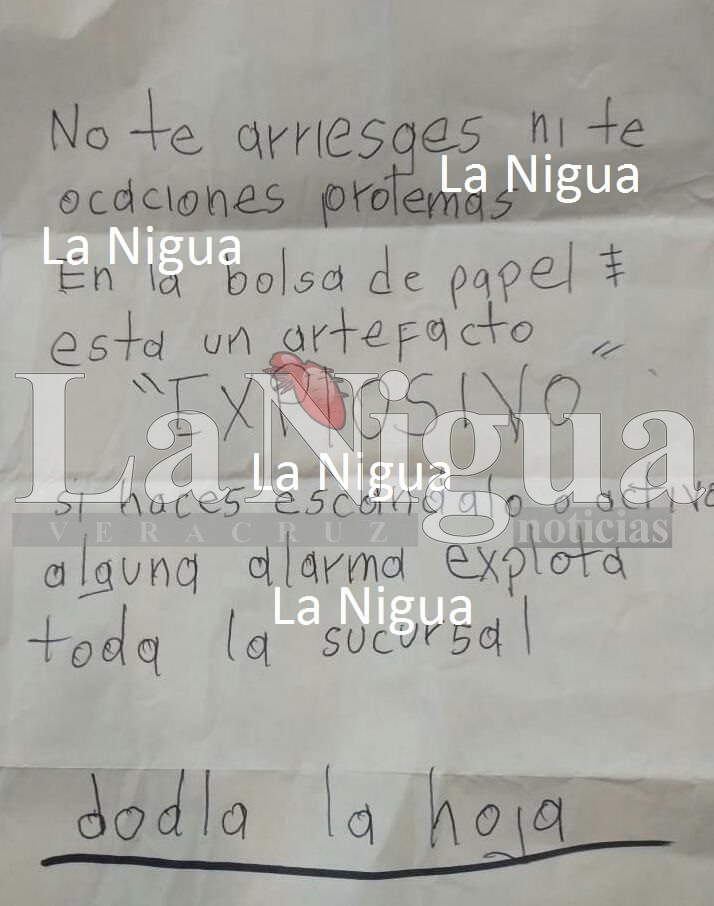 No te arriesges ni te
La Nigua
ocaciones protemas
La Nigua
En la bolsa de papel
esta un artefacto
"EXPLOSIVO"
LaNigua
La Nigua
si haces escandalo o active
VERACRUZ noticias
alguna alarma explota
La Nigua
toda la sucursal
dodla la hoja
La Nigua